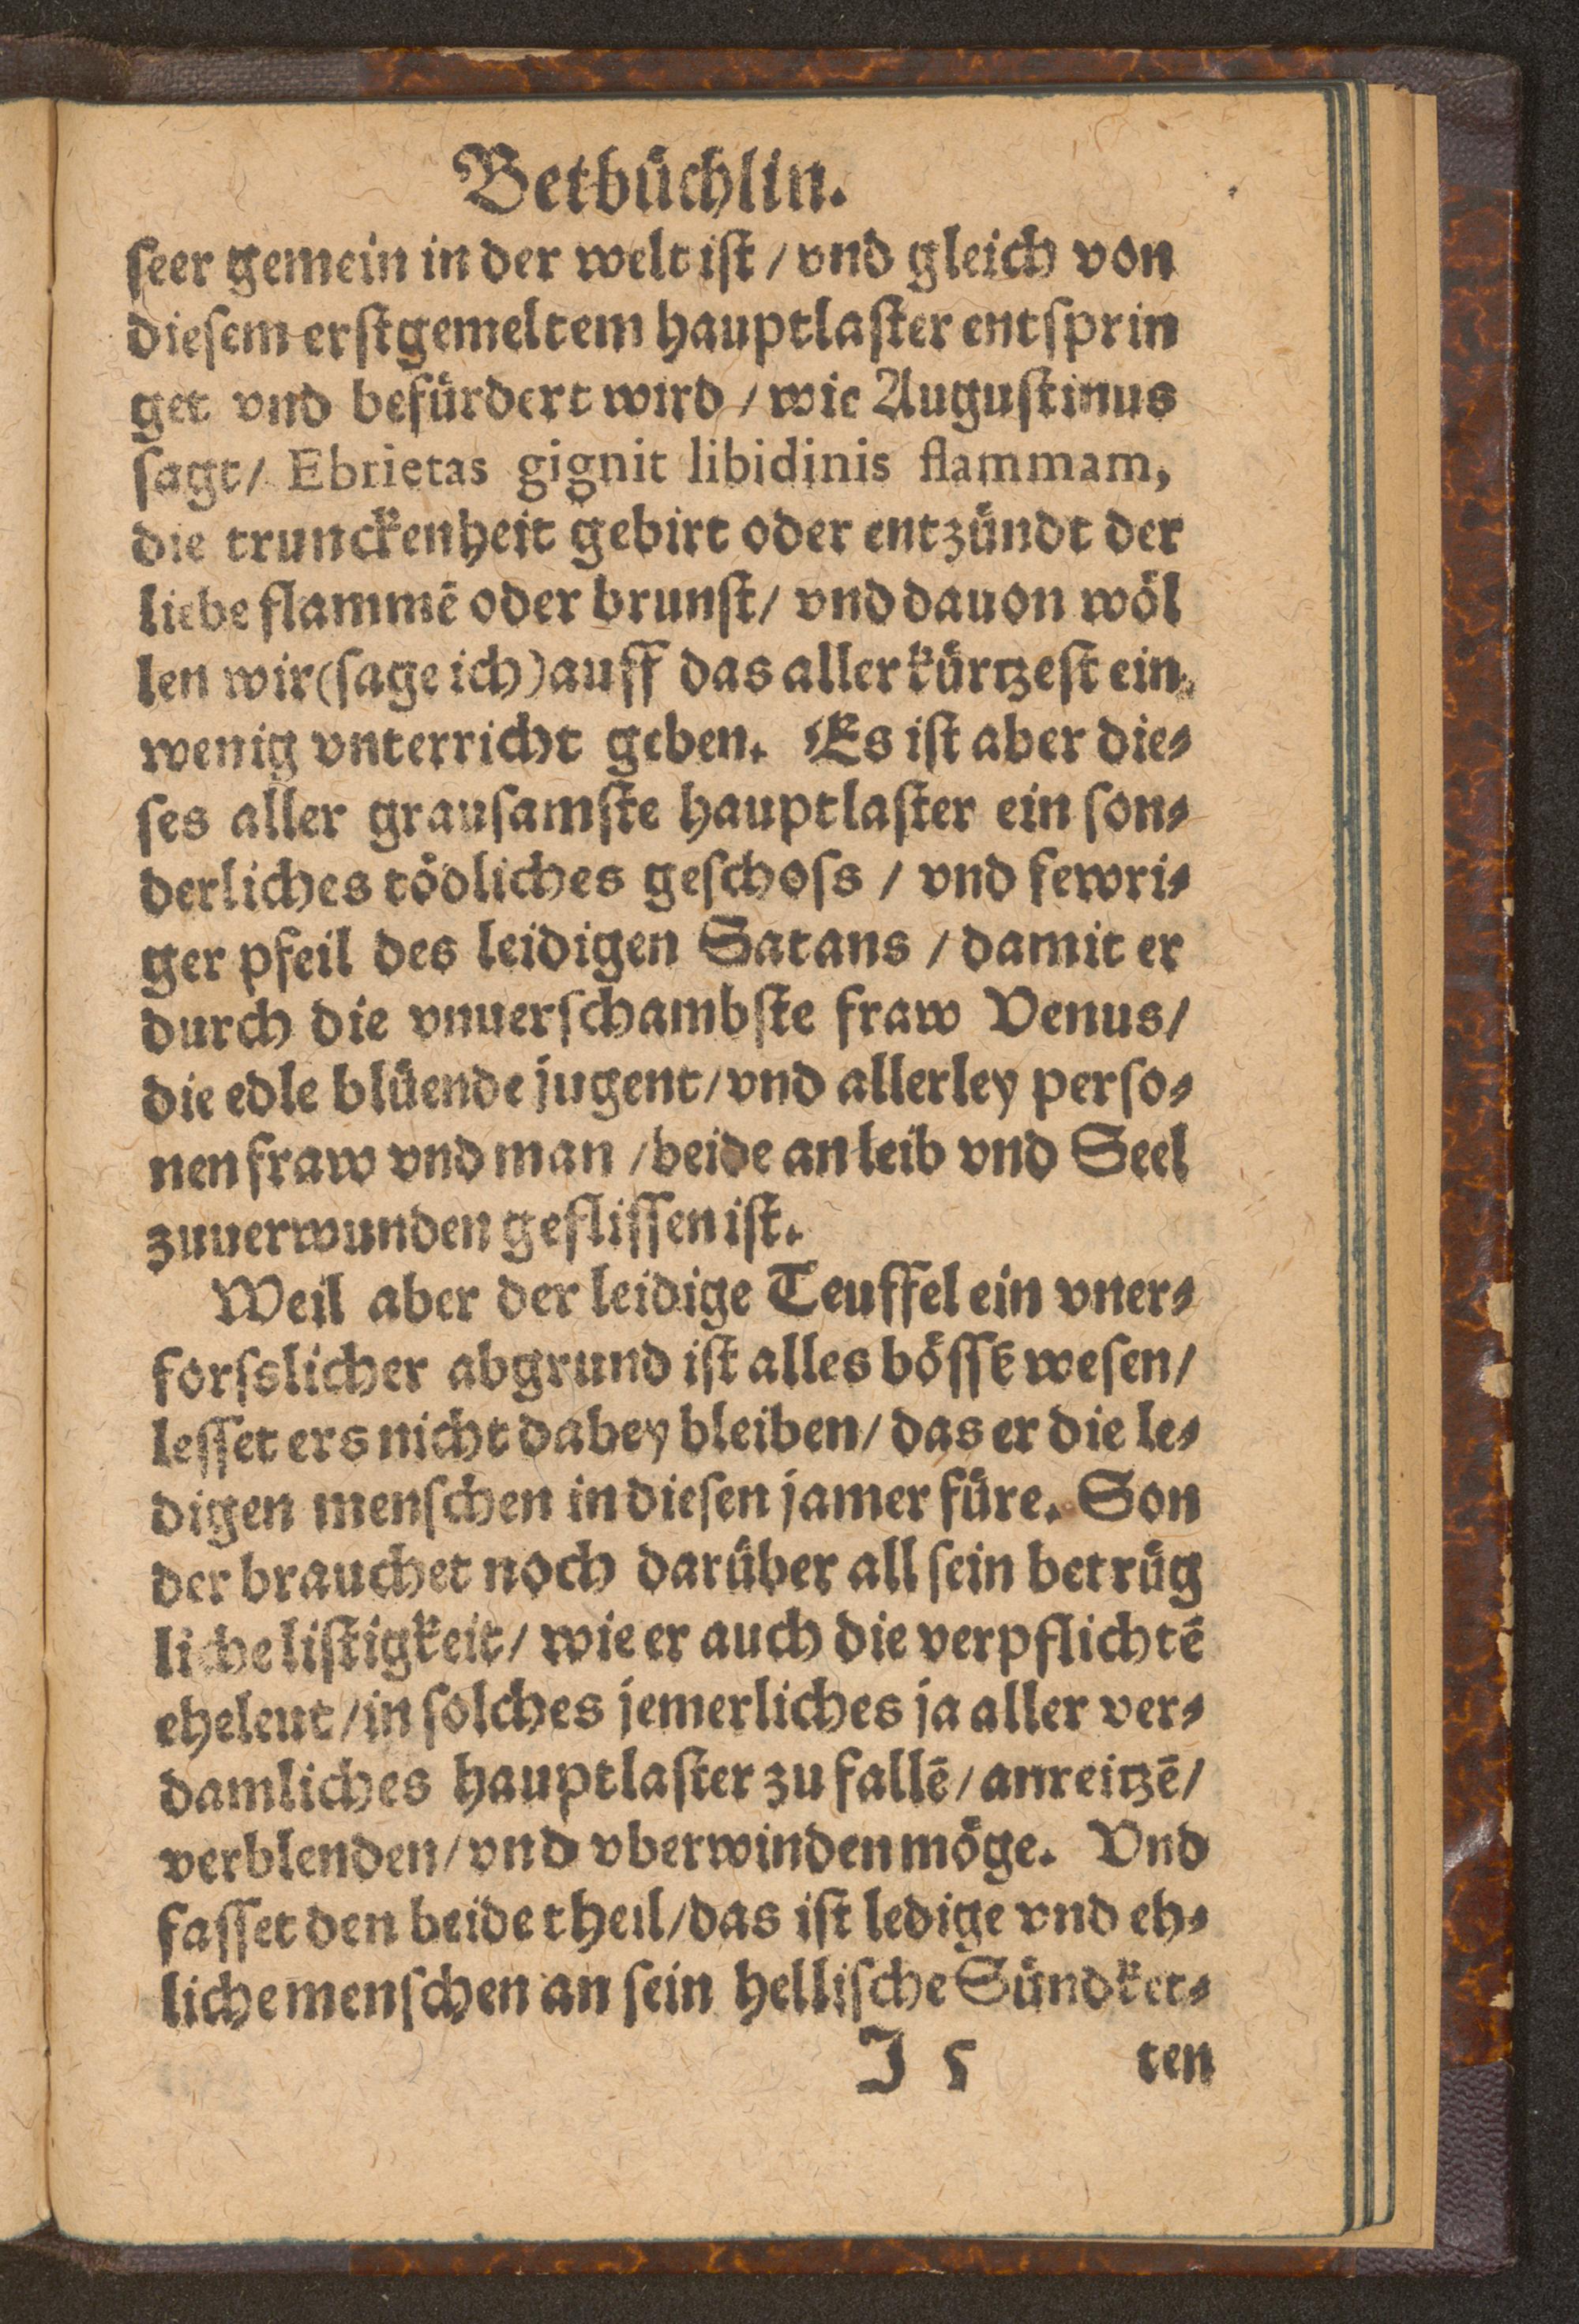 Betbüchlin.
seer gemein in der welt ist / vnd gleich von
diesem erstgemeltem hauptlaster entsprin
get vnd befürdert wird / wie Augustinus
sagt / Ebrietas gignit libidinis flammam,
die trunckenheit gebirt oder entzündt der
liebe flammē oder brunst / vnd dauon wöl
len wir (sage ich) auff das aller kürtzest ein
wenig vnterricht geben. Es ist aber die⸗
ses aller grausamste hauptlaster ein son⸗
derliches tödliches geschoss / vnd fewri⸗
ger pfeil des leidigen Satans / damit er
durch die vnuerschambste fraw Venus /
die edle blüende jugent / vnd allerley perso⸗
nen fraw vnd man / beide an leib vnd Seel
zuuerwunden geflissen ist.
Weil aber der leidige Teuffel ein vner⸗
forsslicher abgrund ist alles bössē wesen /
lesset ers nicht dabey bleiben / das er die le⸗
digen menschen in diesen jamer füre. Son
der brauchet noch darüber all sein betrüg
liche listigkeit / wie er auch die verpflichtē
eheleut / in solches jemerliches ja aller ver⸗
damliches hauptlaster zu fallē / anreitzē /
verblenden / vnd vberwinden möge. Vnd
fasset den beide theil / das ist ledige vnd eh⸗
liche menschen an sein hellische Sündket⸗
J 5 ten